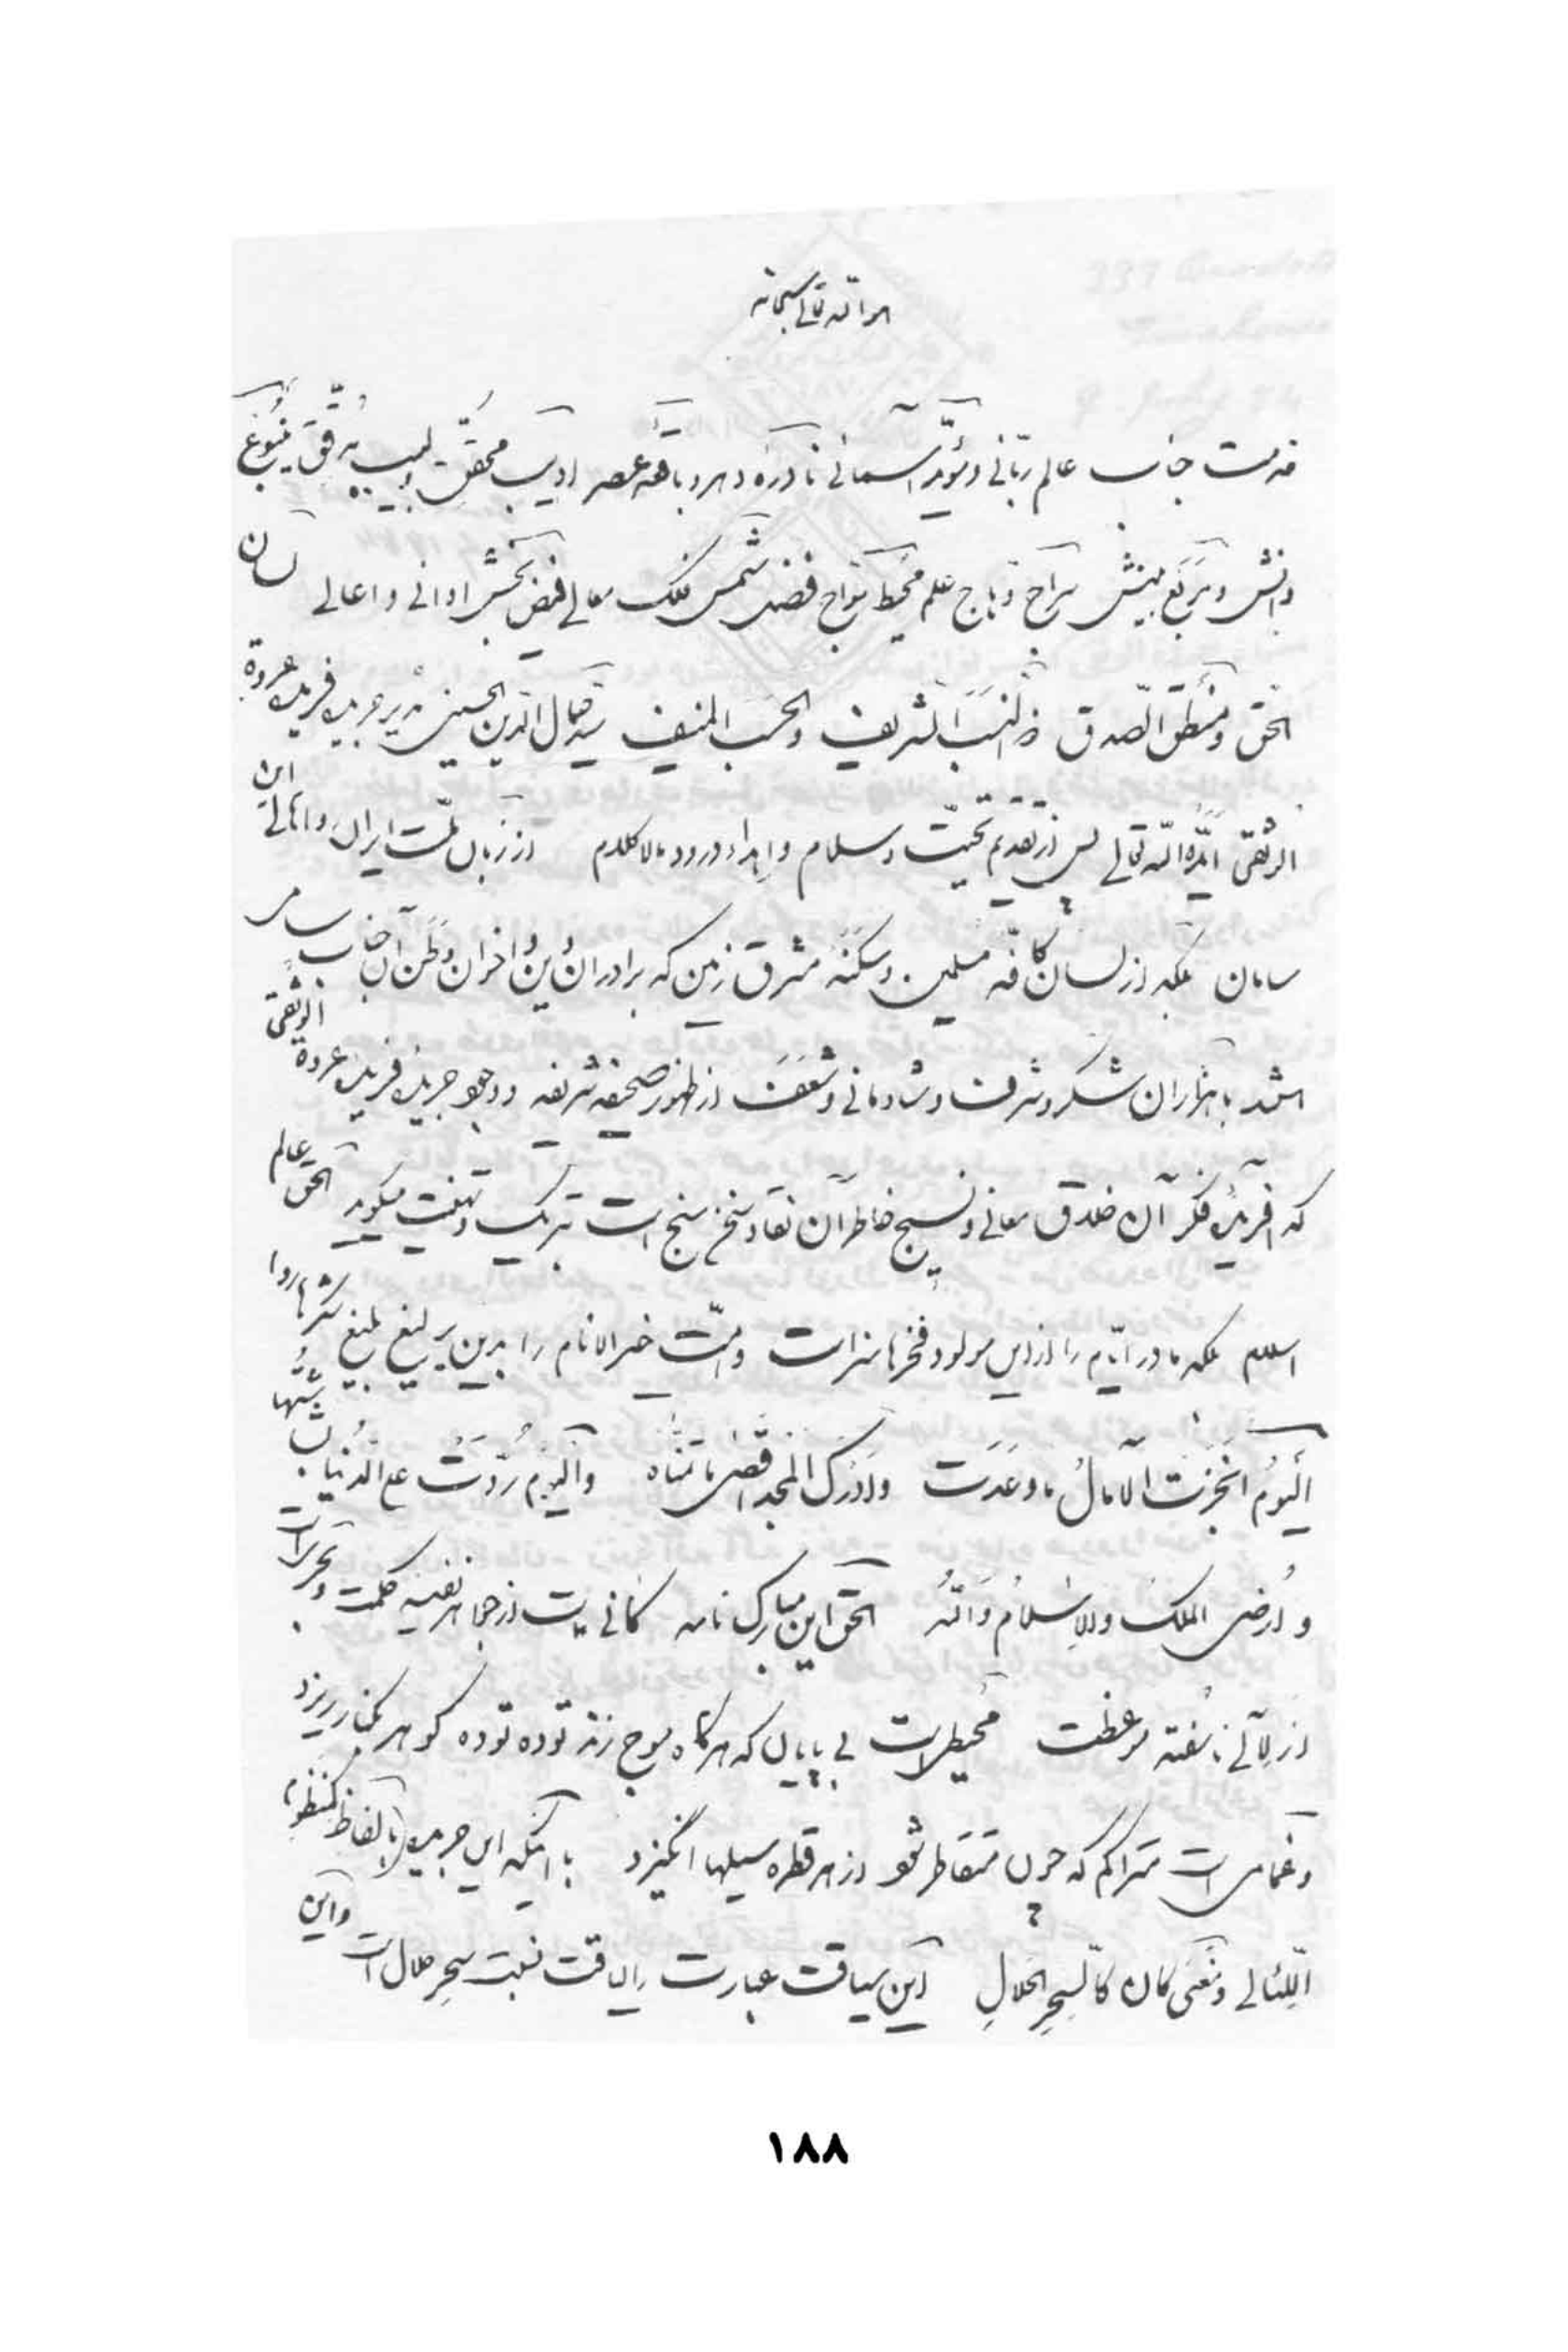 هو الله تعالی سبحانه
خدمت جناب عالم ربّانی و مؤیّد آسمانی نادره دهر و باقعه عصر ادیب محقّق لبیب مدقّق ینبوع
دانش و مربع بینش سراج وهاج علم محیط مواج فضل شمس فلک معالی فیض بخش ادانی و اعالی لسان
الحق و منطق الصّدق ذو النسب الشریف والحسب المنیف سید جمال الدین الحسینی مدیر جریده فریده عروة
الوثقی ایّده الله تعالی پس از تقدیم تحیّت و سلام و اهداء درود مالا کلام از زبان ملّت ایران و اهالی این
سامان بلکه از لسان کافّه مسلمین و سکنه مشرق زمین که برادران دین و اخوان وطن آن جناب سامی
باشند با هزاران شکر و شرف و شادمانی و شعف از ظهور صحیفه شریفه و وجود جریده فریده عروة الوثقی
که آفریده فکر آن خلاق معانی و نسیج خاطر آن نقاد سخن سنج است تبریک و تهنیت میگوید الحق عالم
اسلام بلکه مادر ایّام را از این مولود فخرها سزاست و امّت خیر الانام را بدین یرلیغ بلیغ شکرها روا
اَلیَومُ اَنجَزَتِ الآمالُ ما وَعَدَت واَدرَکَ المَجدُ اقصی ما تَمَنّاه والیَومَ رُدَّت علی الدُّنیا بشاشَتُها
و اُرضی الملکُ والاِسلامُ وَاللهُ الحق این مبارک نامه کانی است از جواهر نفیسه حکمت و بحریست
از لآلی ناسفته موعظت محیطی است بی پایان که هرگاه موج زند توده توده گوهر بکنار ریزد
و غمامی است متراکم که چون متقاطر شود از هر قطره سیلها انگیزد با آنکه این جریده بالفاظ کمنظوم
اللّئالی و مَعنیً کان کالسِّحرِ الحَلالِ این سیاقت عبارت را لیاقت نسبت سحر حلال است و این
۱۸۸